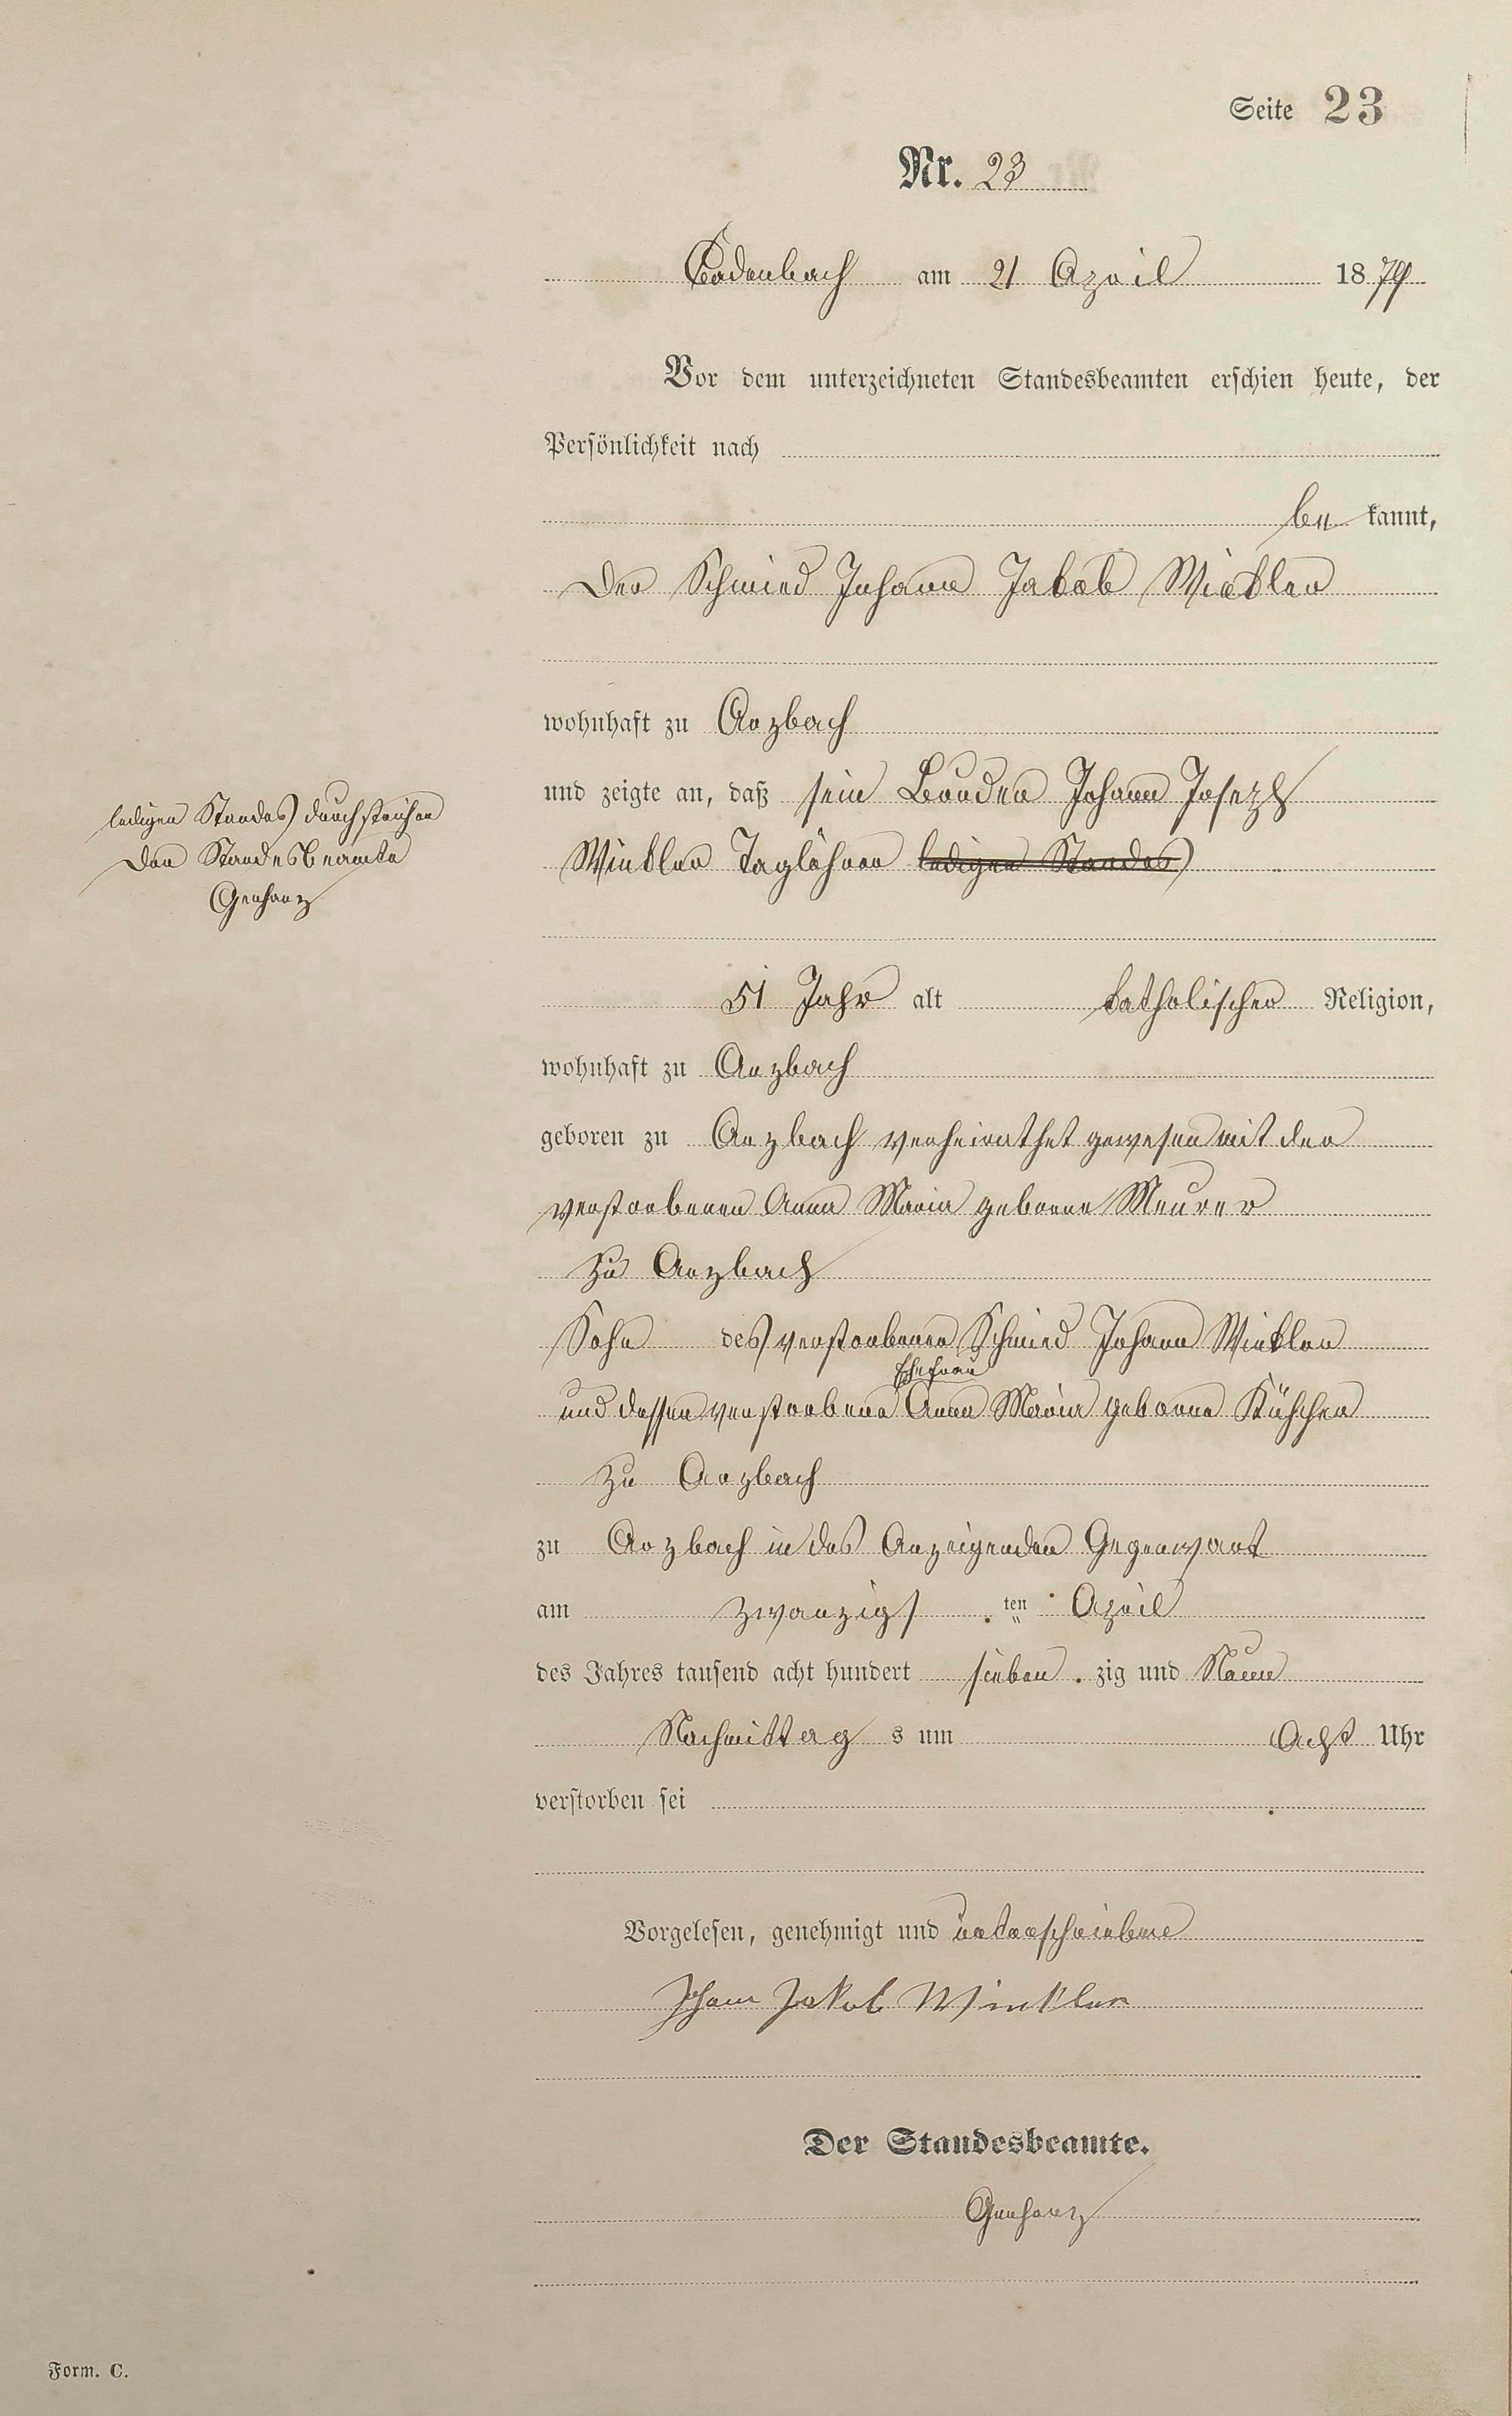 Seite 23
Nr. 23
Bodenbach am 21 April 1879
Vor dem unterzeichneten Standesbeamten erschien heute, der
Persönlichkeit nach
be kannt,
der Schmied Johann Jakob Winkler
wohnhaft zu Arzbach
und zeigte an, daß sein Bruder Johann Joseph
Winkler Taglöhner ledigen Standes
ledigen Standes durchstrichen
Der Standesbeamte
51 Jahr alt katholischer Religion,
wohnhaft zu Arzbach
geboren zu Arzbach verheirathet gewesen mit der
verstorbenen Anna Maria geborne Meurer
zu Arzbach
Sohn des verstorbenen Schmied Johann Winkler
und dessen verstorbene Ehefrau Anna Maria geborne
zu Arzbach
zu Arzbach in des Anzeigenden Gegenwart
am zwanzigs ten April
des Jahres tausend acht hundert sieben zig und Neun
Nachmittag s um Acht Uhr
verstorben sei
Vorgelesen, genehmigt und unterschrieben
Johann Jakob Winkler
Der Standesbeamte.
Form. C.